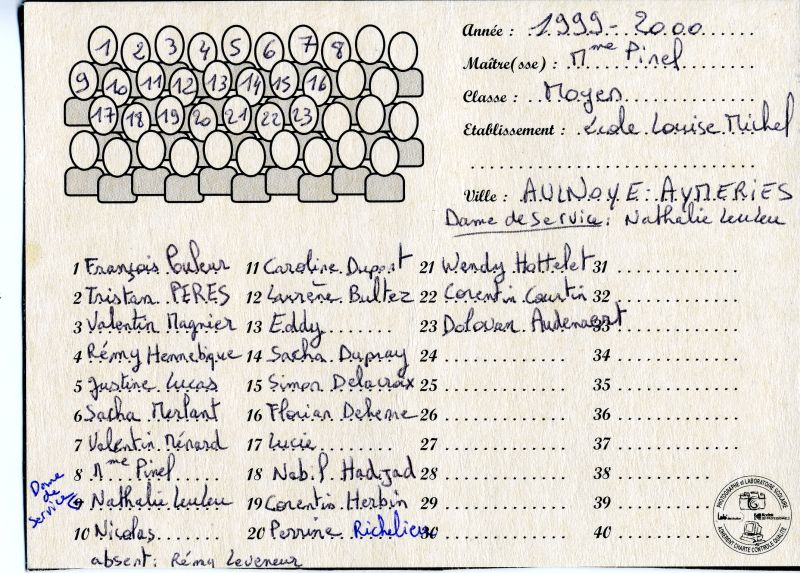 1 2 3 4 5 6 7 8
9 10 11 12 13 14 15 16
17 18 19 20 21 22 23
Année : 1999-2000
Maître(sse) : Mme Pinel
Classe : Moyen
Etablissement : école Louise Michel
Ville : AULNOYE-AYMERIES
Dame de service : Nathalie Leuleu
1 François Culeur
2 Tristan PERES
3 Valentin Magnier
4 Rémy Hennebique
5 Justine Lucas
6 Sacha Merlant
7 Valentin Ménard
8 Mme Pinel
Dame de service
9 Nathalie Leuleu
10 Nicolas
absent : Rémy Leveneur
11 Caroline Dupont
12 Laurène Bultez
13 Eddy
14 Sacha Dupray
15 Simon Delacroix
16 Florian Dehenne
17 Lucie
18 Nabil Hadjad
19 Corentin Herbin
20 Perrine Richelieu
21 Wendy Hottelet
22 Corentin Courtin
23 Dolovan Audenaert
24
25
26
27
28
29
30
31
32
33
34
35
36
37
38
39
40
PHOTOGRAPHE et LABORATOIRE SCOLAIRE
ADHERENT CHARTE CONTROLE QUALITE